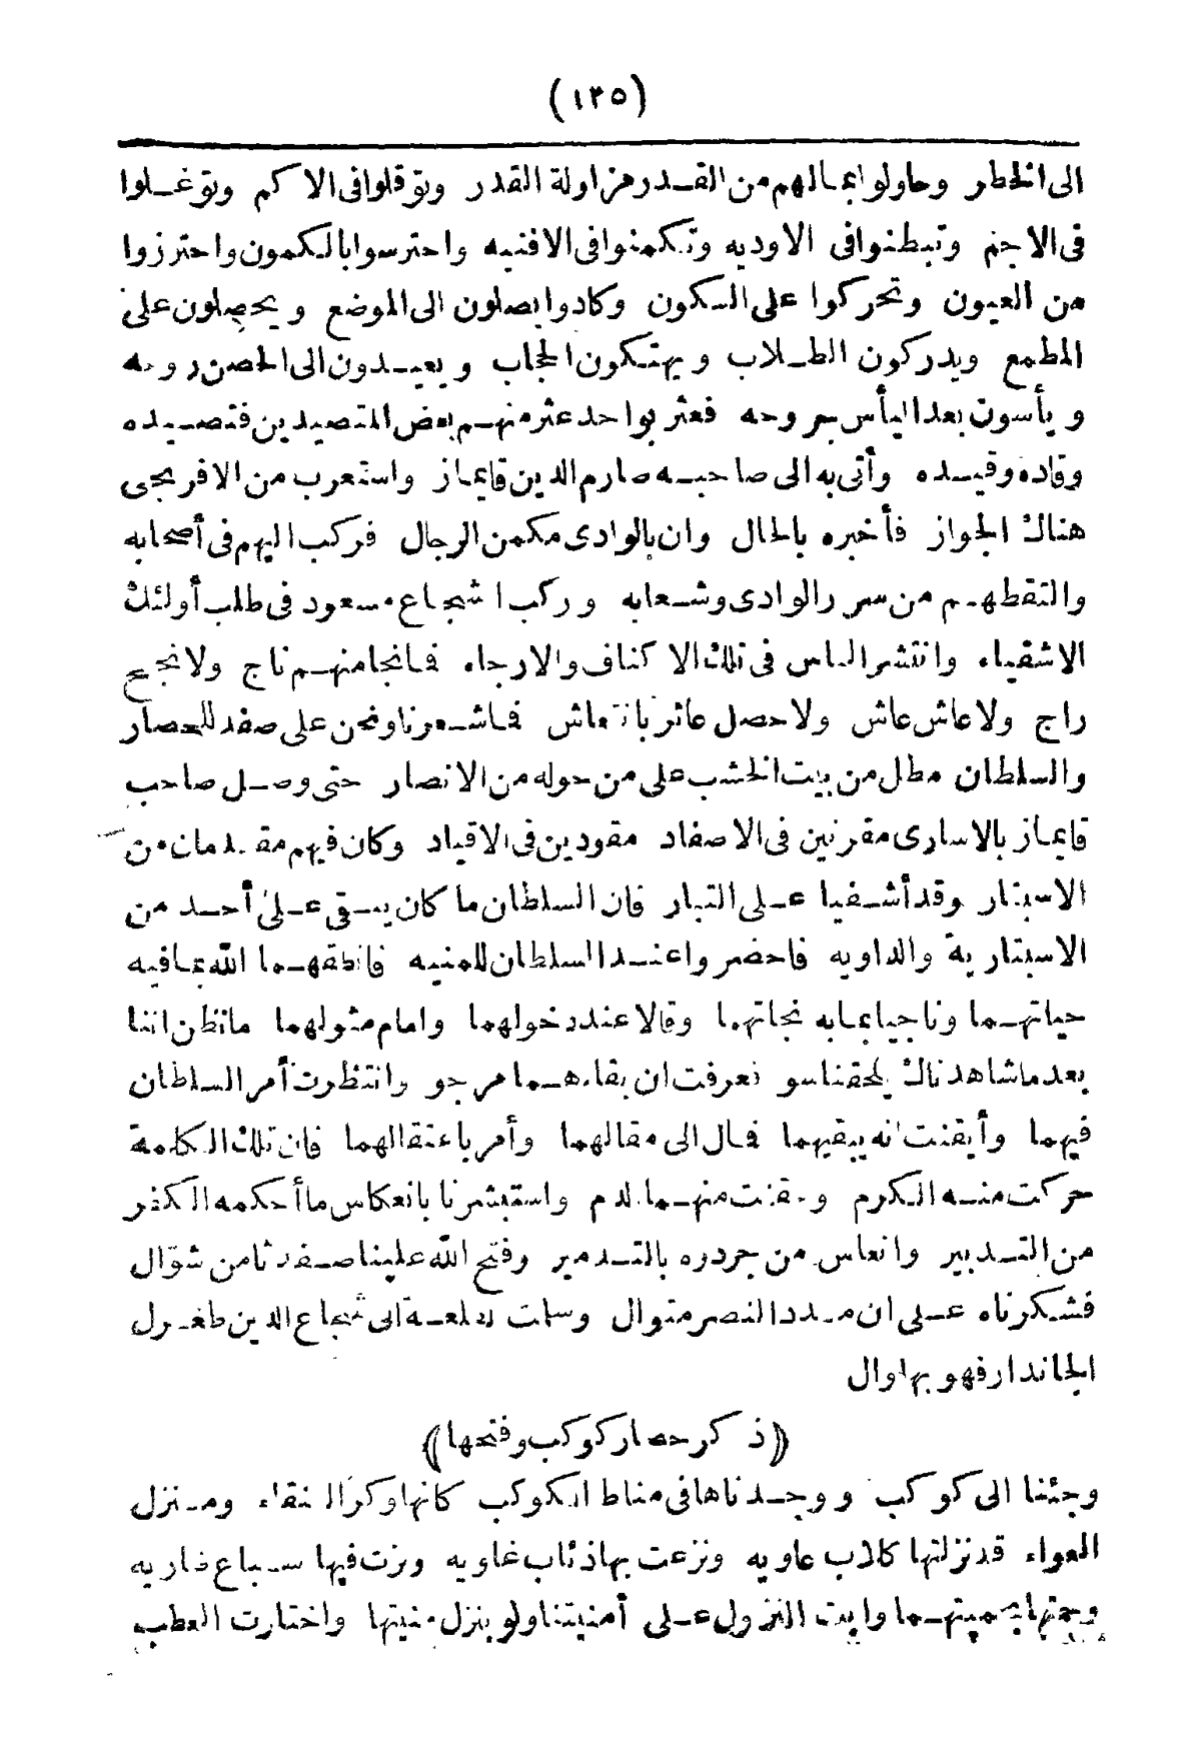 (١٣٥)
الى الخطر وحاولوا بمالهم من القدر مزاولة القدر وتوقلوا فى الاكم وتوغلوا
فى الاجم وتبطنوا فى الاوديه وتكمنوا فى الافنيه واحترسوا بالكمون واحترزوا
من العيون وتحركوا على السكون وكادوا يصلون الى الموضع ويحصلون على
المطمع ويدركون الطلاب ويهتكون الحجاب ويعيدون الى الحصن روحه
ويأسون بعد اليأس جروحه فعثر بواحد عثر منهم بعض المتصيدين فتصيده
وقاده وقيده وأتى به الى صاحبه صارم الدين قايماز واستعرب من الافرنجى
هناك الجواز فأخبره بالحال وان بالوادى مكمن الرجال فركب اليهم فى أصحابه
والتقطهم من سر الوادى وشعابه وركب اشجاع مسعود فى طلب أولئك
الاشقياء وانتشر الناس فى تلك الاكناف والارجاء فمانجا منهم ناج ولا نجح
راج ولا عاش عاش ولا حصل عاثر بانتعاش فماشعرنا ونحن على صفد للحصار
والسلطان مطل من بيت الخشب على من حوله من الانصار حتى وصل صاحب
قايماز بالاسارى مقرنين فى الاصفاد مقودين فى الاقياد وكان فيهم مقدمان من
الاسبتار وقد أشفيا على التبار فان السلطان ما كان يبقى على أحد من
الاسبتارية والداويه فاحضروا عند السلطان للمنيه فانطقهما الله بمافيه
حياتهما وناجيا بمابه نجاتهما وقالا عند دخولهما وامام مثولهما مانظن اننا
بعد ما شاهدناك يلحقنا سو فعرفت ان بقاءهما مرجو وانتظرت أمر السلطان
فيهما وأيقنت انه يبقيهما فمال الى مقالهما وأمر باعتقالهما فان تلك الكلمة
حركت منه الكرم وحقنت منهما الدم واستبشرنا بانعكاس ما أحكمه الكفر
من التدبير وانعاس من جردره بالتدمير وفتح الله علينا صفد ثامن شوّال
فشكرناه على ان مدد النصر متوال وسلمت القلعة الى شجاع الدين طغرل
الجاندار فهو بها وال
((ذكر حصار كوكب وفتحها))
وجئنا الى كوكب ووجدناها فى مناط الكوكب كانها وكر العنقاء ومنزل
العواء قد نزلتها كلاب عاويه ونزعت بها ذئاب غاويه ونزت فيها سباع ضاريه
وحمتها بحميتهما وابت النزول على أمنيتنا ولو بنزل منيتها واختارت العطب